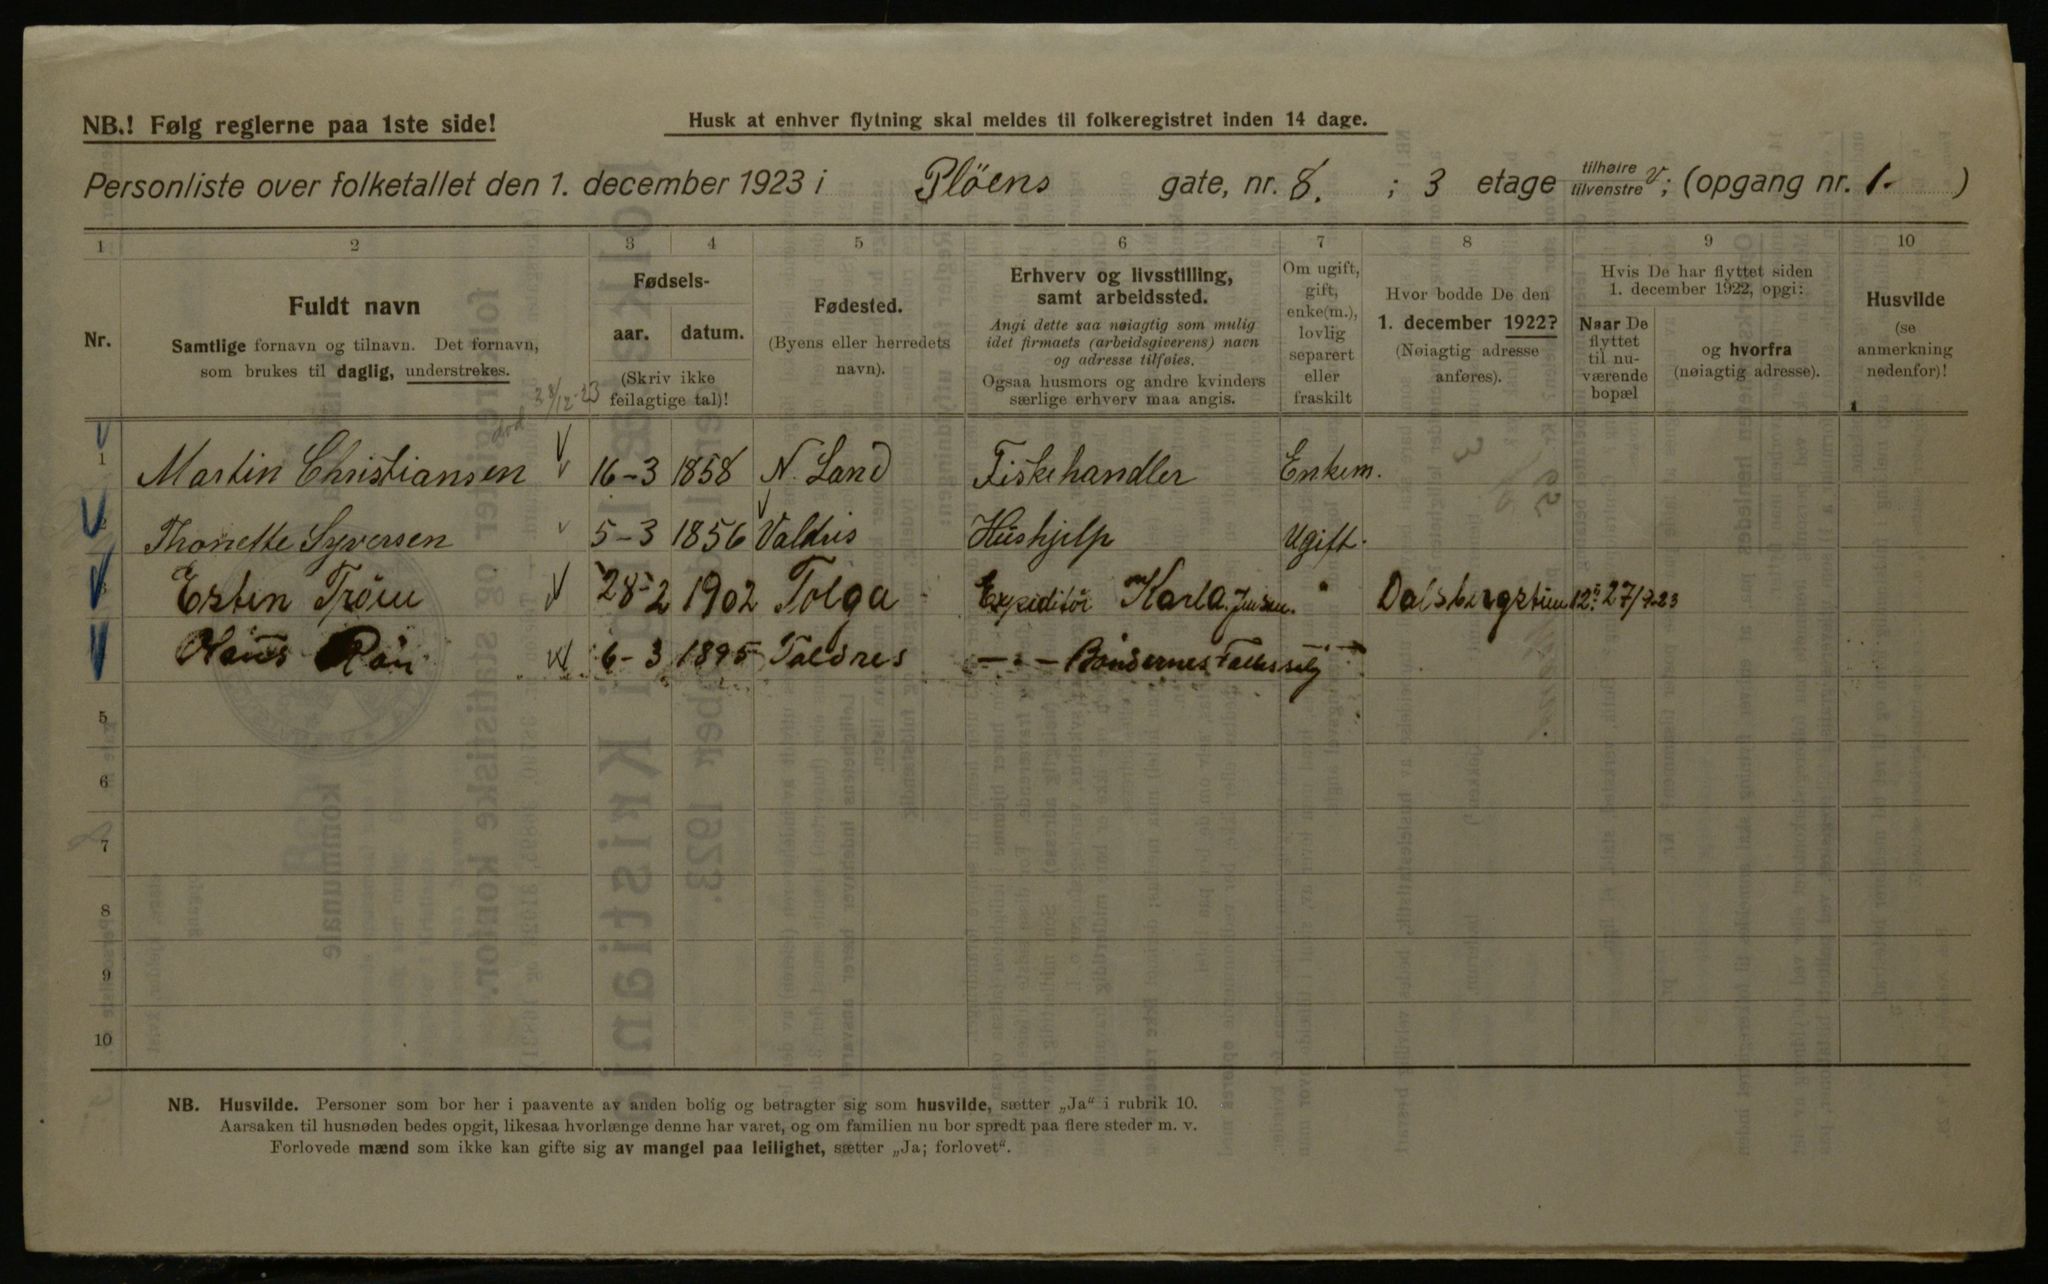 NB.! Følg reglerne paa 1ste side!
Husk at enhver flytning skal meldes til folkeregistret inden 14 dage.
Personliste over folketallet den 1. december 1923 i Plöens gate, nr. 8. ; 3 etage tilhøire tilvenstre v; (opgang nr. 1. )
1 2 3 4 5 6 7 8 9 10
Nr.
Fuldt navn
Samtlige fornavn og tilnavn. Det fornavn,
som brukes til daglig, understrekes.
Fødsels-
aar. datum.
(Skriv ikke
feilagtige tal)!
Fødested.
(Byens eller herredets
navn).
Erhverv og livsstilling,
samt arbeidssted.
Angi dette saa nøiagtig som mulig
idet firmaets (arbeidsgiverens) navn
og adresse tilføies.
Ogsaa husmors og andre kvinders
særlige erhverv maa angis.
Om ugift,
gift,
enke(m.),
lovlig
separert
eller
fraskilt
Hvor bodde De den
1. december 1922?
(Nøiagtig adresse
anføres).
Hvis De har flyttet siden
1. december 1922, opgi:
Naar De
flyttet
til nu-
værende
bopæl
og hvorfra
(nøiagtig adresse).
Husvilde
(se
anmerkning
nedenfor)!
død 28/12-23
1 Martin Christiansen 16-3 1858 N. Land Fiskehandler Enkem.
2 Thonette Syversen 5-3 1856 Valdris Hushjelp Ugift.
3 Esten Tröen 28-2 1902 Tolga Expeditör Karl Jensen. " Dalsbergstien 12 27/9.23
Hans Røn 6-3 1895 Valdres — " — Böndernes Fællessalg "
5
6
7
8
9
10
NB. Husvilde. Personer som bor her i paavente av anden bolig og betragter sig som husvilde, sætter „Ja“ i rubrik 10.
Aarsaken til husnøden bedes opgit, likesaa hvorlænge denne har varet, og om familien nu bor spredt paa flere steder m. v.
Forlovede mænd som ikke kan gifte sig av mangel paa leilighet, sætter „Ja; forlovet“.